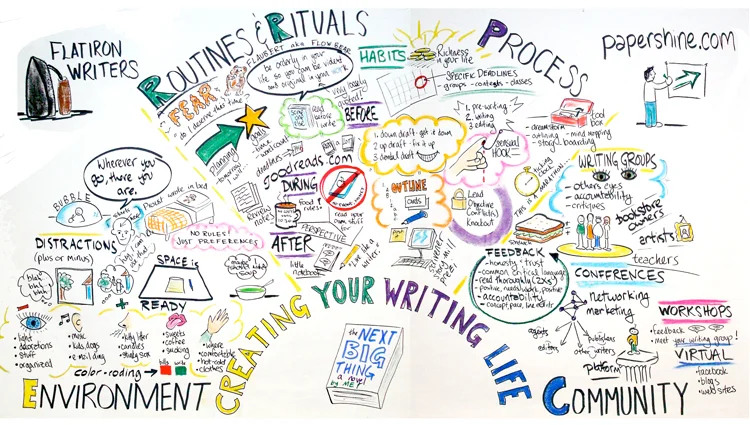 FLATIRON
WRITERS
ROUTINES & RITUALS
FEAR
FLAUBERT aka FLOW BEAR
be orderly in your
life so you can be violent
and original in your work
HABITS
Richness
in your life
SPECIFIC DEADLINES
groups - contests - classes
PROCESS
papershine.com
planning
goals
time
word count
deadlines
goodreads.com
read
before
write
BEFORE
1. down draft - get it down
2. up draft - fix it up
3. dental draft
1. pre-writing
2. writing
3. editing
sensual
HOOK
tool
box
dreamstorm
outlining - mind mapping
story boarding
THIS IS A MARATHON
WRITING GROUPS
others eyes
accountability
critiques
bookstore
owners
artists
teachers
Wherever you
go, there you
are.
BUBBLE
Proust wrote in bed
NO RULES!
JUST PREFERENCES
DISTRACTIONS
(plus or minus)
blah
blah
blah
SPACE is
READY
DURING
food
rules
read your
own stuff
for
PERSPECTIVE
AFTER
little
notebook
live like a
writer
OUTLINE
cards
Lead
Objective
Conflict(s)
Knockout
FEEDBACK
honesty + trust
common critical language
read thoroughly (2xs)
positive, needs work, positive
accountability
CONFERENCES
networking
marketing
agents
editors
publishers
other writers
platform
WORKSHOPS
Feedback
meet your writing group!
VIRTUAL
facebook
blogs
websites
light
decorations
stuff
organized
music
kids, dogs
e-mail ding
kitty litter
candles
sweets
coffee
smoking
where
comfortable
hot-cold
clothes
color-coding
ENVIRONMENT
CREATING YOUR WRITING LIFE
the NEXT
BIG
THING
a novel
by ME!
COMMUNITY